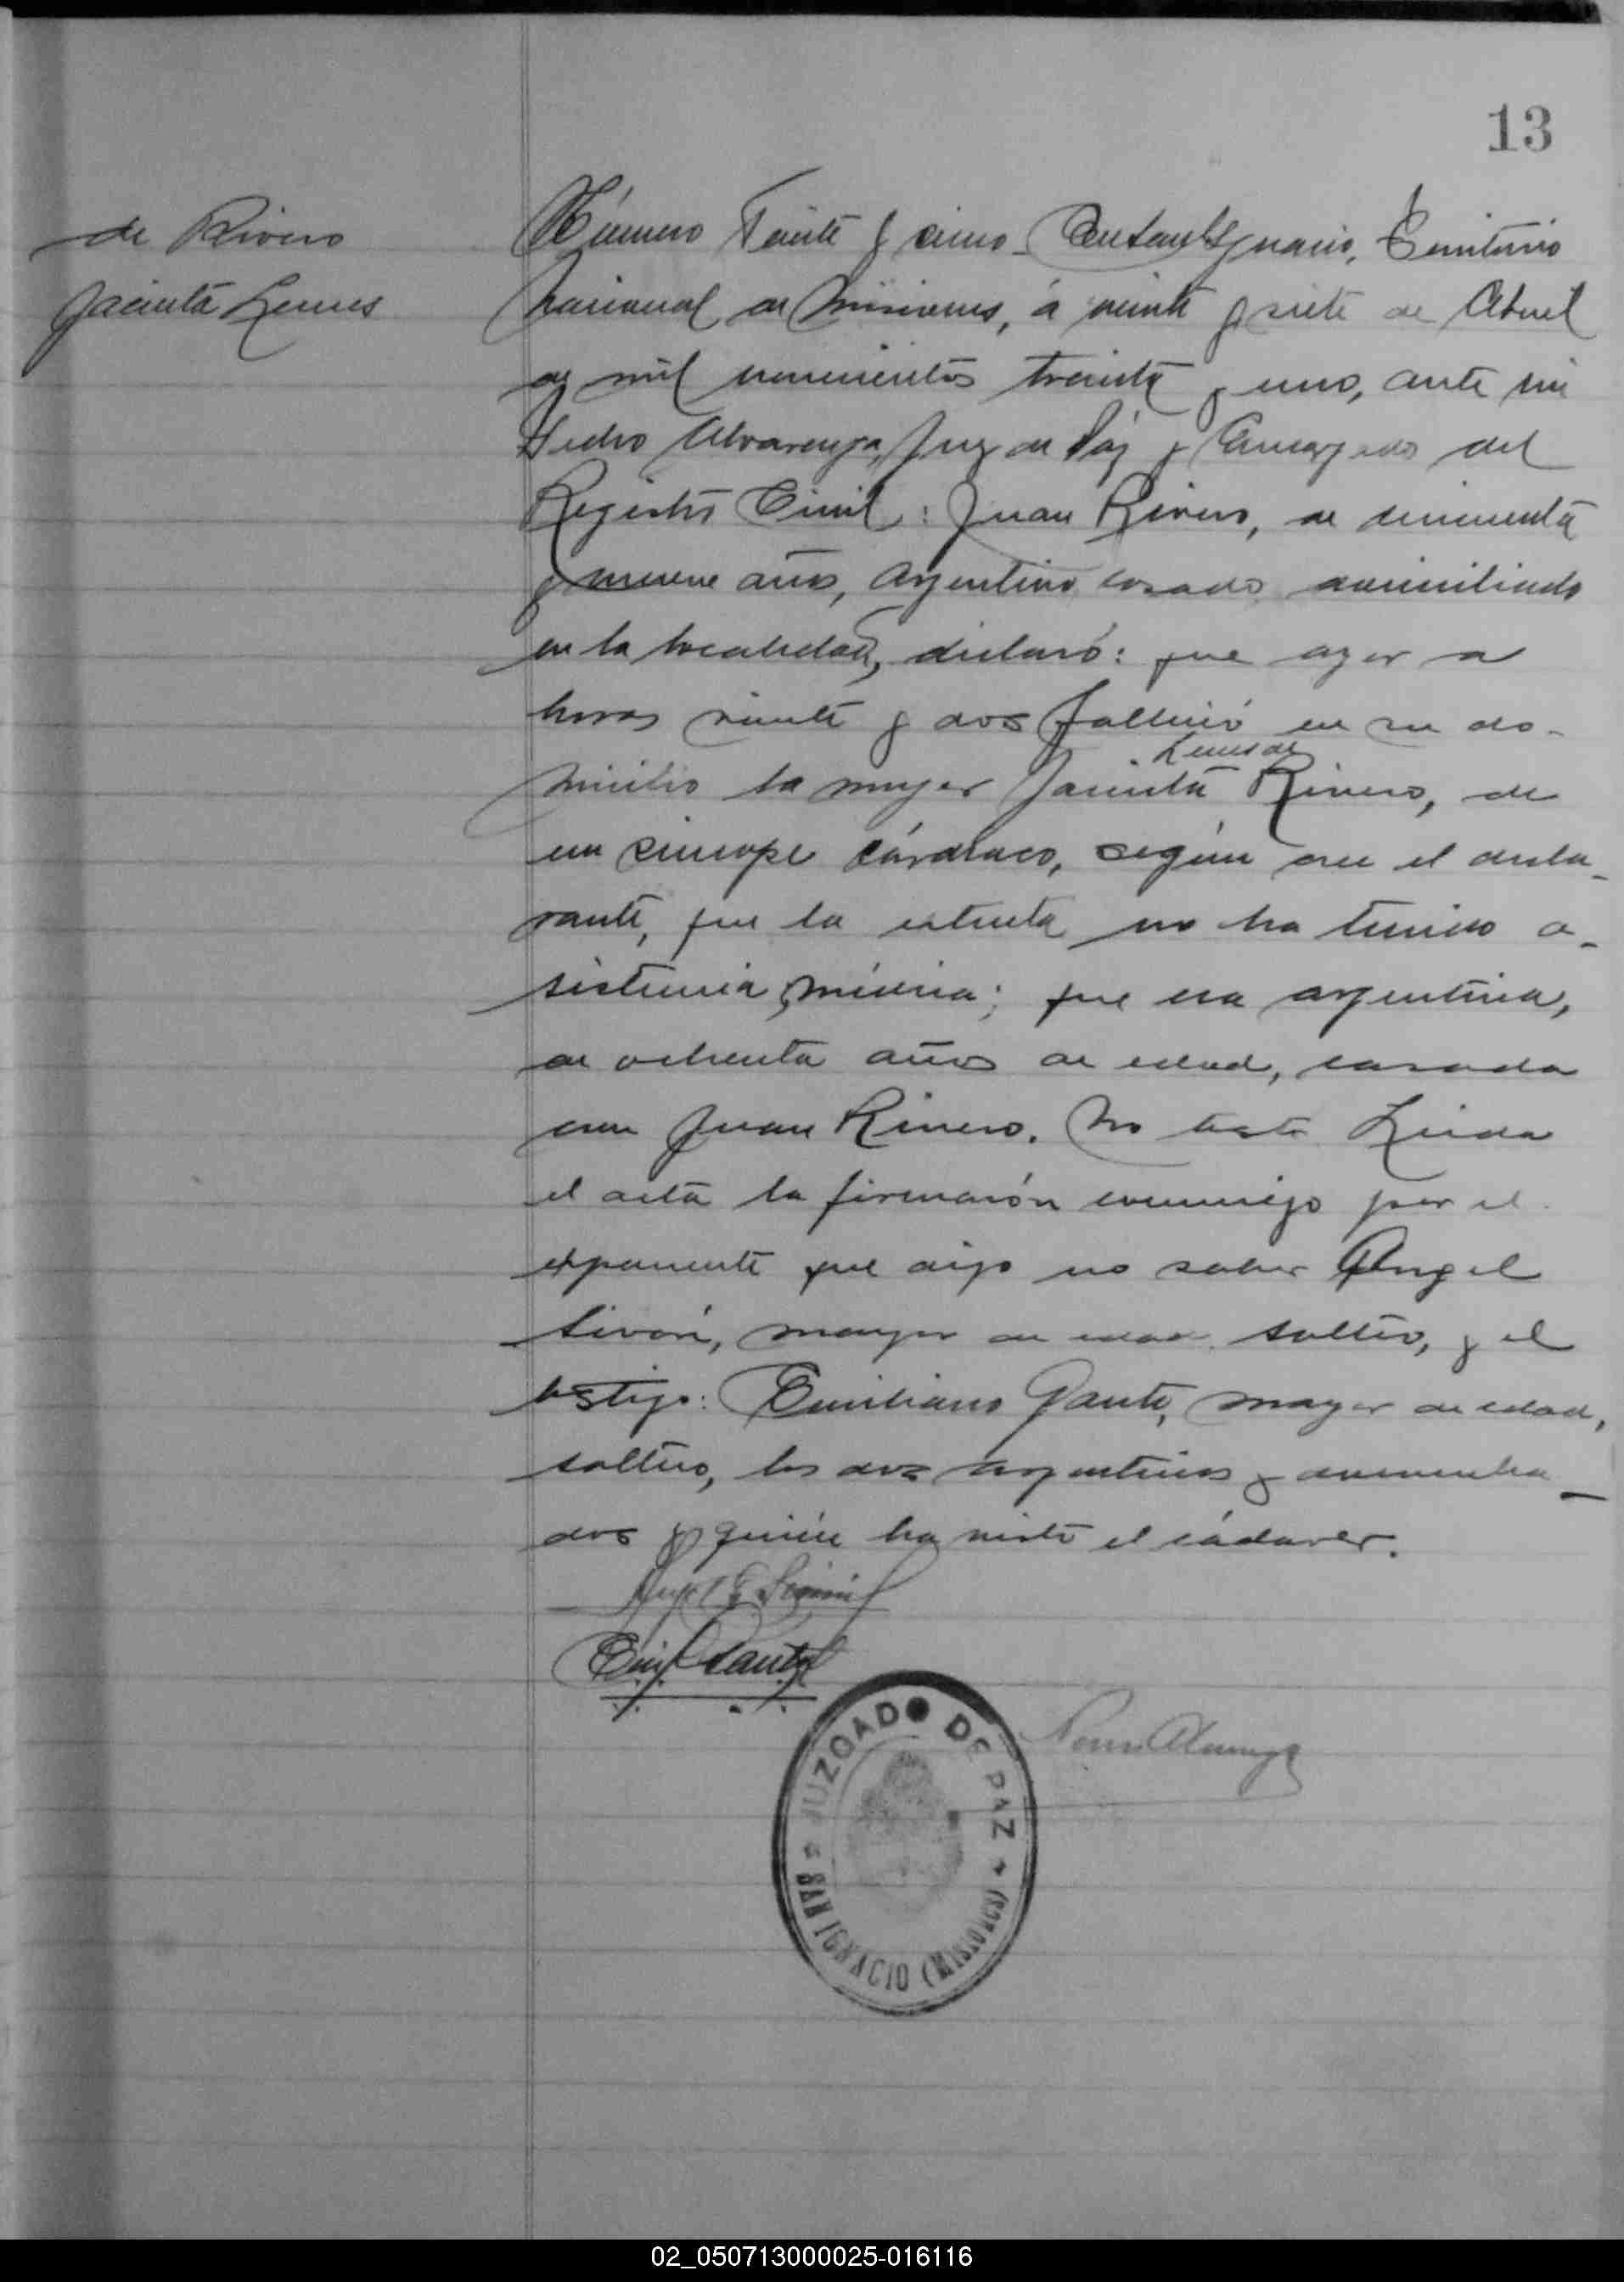 13
de Rivero
Jacinta Lemes
Número Veinte y cinco. En San Ignacio, Territorio
Nacional de Misiones, á veinte y siete de Abril
de mil novecientos treinta y uno, ante mi
Pedro Alvarenga, Juez de Páz y Encargado del
Registro Civil: Juan Rivero, de cincuenta
y nueve años, argentino, casado, domiciliado
en la localidad, declaró: que ayer a
horas viente y dos falleció en su do-
micilio la mujer Jacinta Lemes de Rivero, de
un sincope cárdiaco, según cree el decla-
rante, que la extinta no ha tenido a-
sistencia médica; que era argentina,
de ochenta años de edad, casada
con Juan Rivero. No testó. Leida
el acta la firmarón conmigo por el
exponente que dijo no saber Angel
mayor de edad, soltero, y el
testigo: Emiliano Gauto, mayor de edad,
soltero, los dos argentinos y domicilia-
dos y quién ha visto el cádaver.
JUZGADO DE PAZ
SAN IGNACIO (MISIONES)
02_050713000025-016116